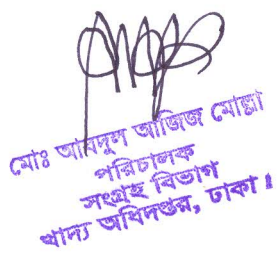 মোঃ আবদুল আজিজ মোল্লা
পরিচালক
সংগ্রহ বিভাগ
খাদ্য অধিদপ্তর, ঢাকা।